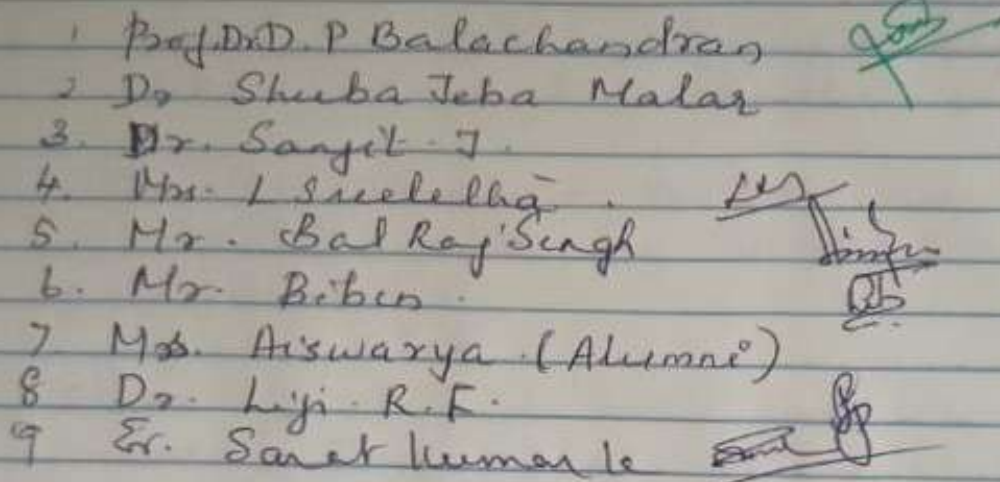 1 Prof. Dr. D. P Balachandran
2 Dr Shuba Jeba Malar
3. Dr. Sanjit. J.
4. Mrs. L Sreelekha.
5. Mr. Bal Raj Singh
6. Mr. Biben.
7 Mrs. Aiswarya (Alumni)
8 Dr. Liji. R.F.
9 Er. Sarat kumar k